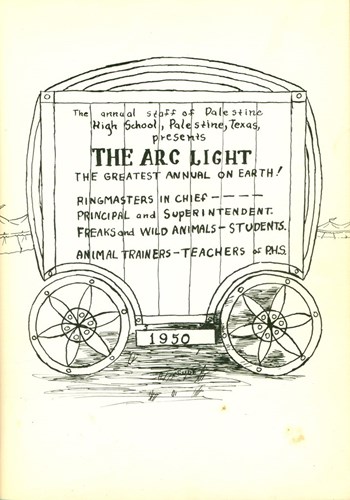 The annual staff of Palestine
High School, Palestine, Texas,
presents
THE ARC LIGHT
THE GREATEST ANNUAL ON EARTH!
RINGMASTERS IN CHIEF -----
PRINCIPAL and SUPERINTENDENT.
FREAKS and WILD ANIMALS - STUDENTS.
ANIMAL TRAINERS - TEACHERS of P.H.S.
1950